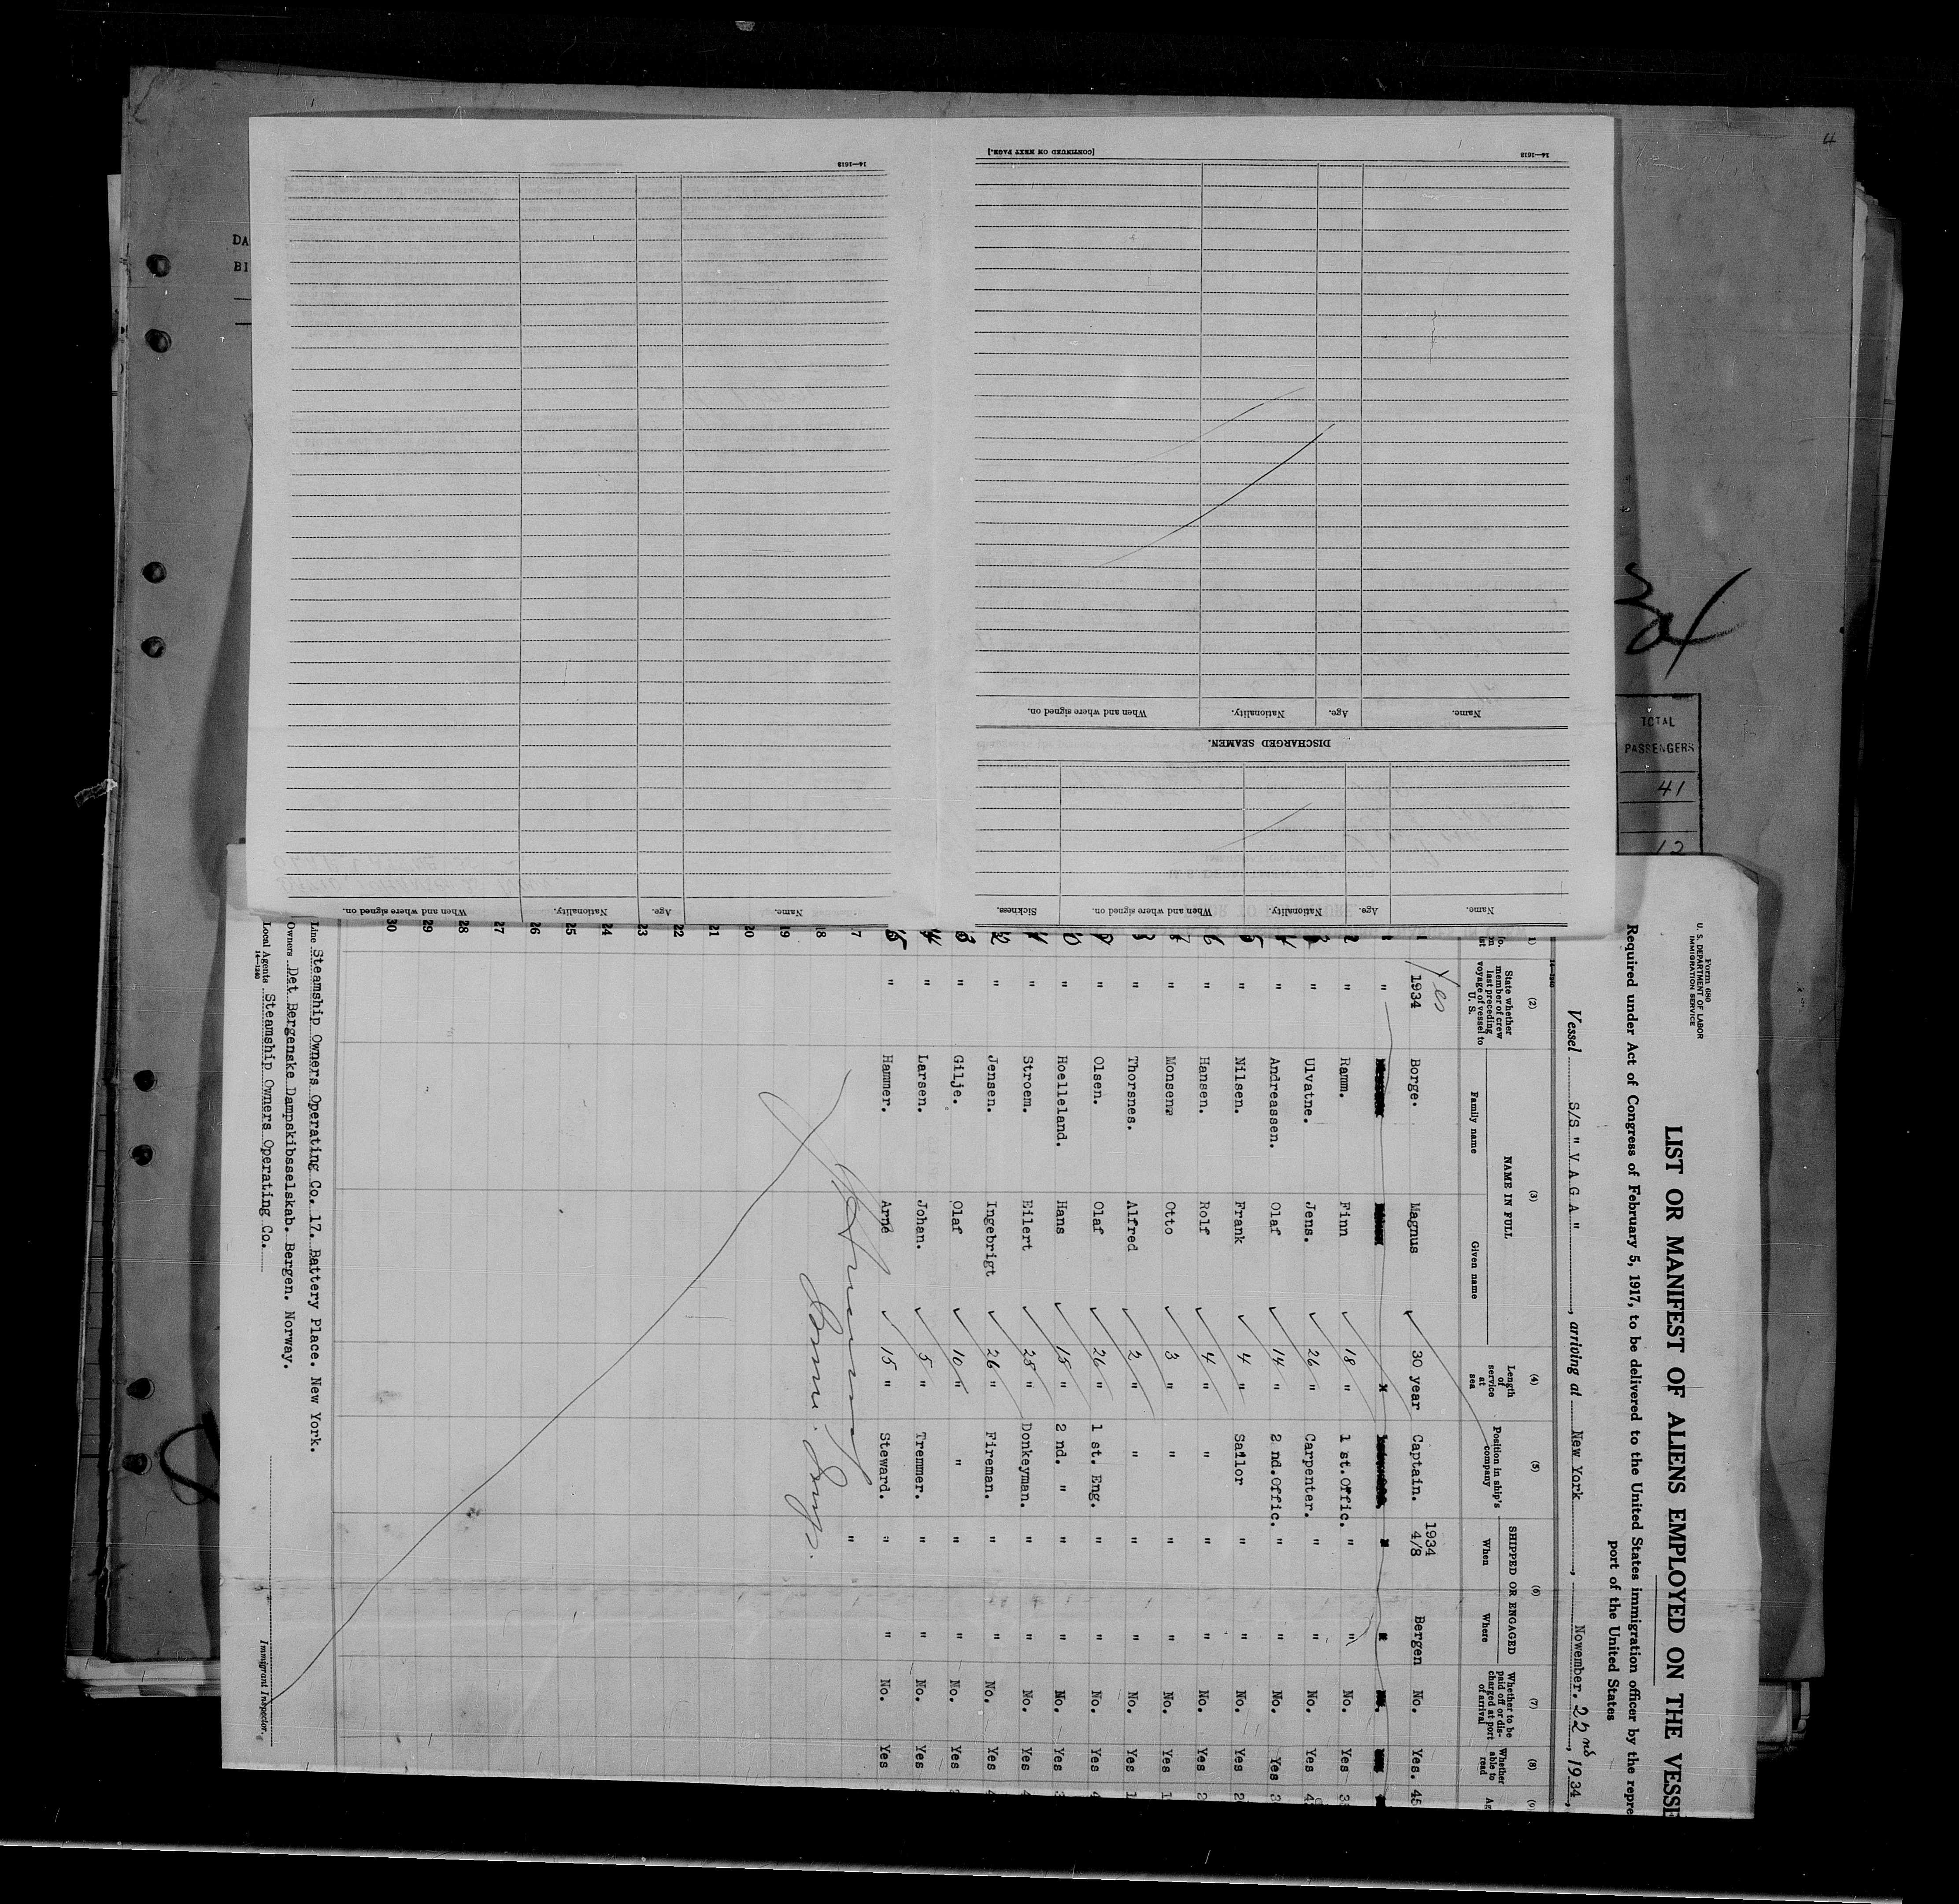 4
DA
BI
24
TOTAL
PASSENGERS
41
12
14—1613
[CONTINUED ON NEXT PAGE.]
14—1613
Name. Age. Nationality. When and where signed on.
DISCHARGED SEAMEN.
Name. Age. Nationality. When and where signed on. Sickness.
Name. Age. Nationality. When and where signed on.
Form 680
U. S. DEPARTMENT OF LABOR
IMMIGRATION SERVICE
LIST OR MANIFEST OF ALIENS EMPLOYED ON THE VESSE
Required under Act of Congress of February 5, 1917, to be delivered to the United States immigration officer by the repre
port of the United States
Vessel S/S " V A G A " , arriving at New York , November. 22nd , 1934,
14—1240
(2) (3) (4) (5) (6) (7) (8) (9)
State whether member of crew last preceding voyage of vessel to U. S.
NAME IN FULL
Family name Given name
Length of service at sea
Position in ship's company
SHIPPED OR ENGAGED
When Where
Whether to be paid off or discharged at port of arrival
Whether able to read
Ag
Yes
1934 Borge. Magnus 30 year Captain. 1934 4/8 Bergen No. Yes. 45
"
2 " Ramm. Finn 18 " 1 st.Offic. " " No. Yes 3
3 " Ulvatne. Jens. 26 " Carpenter. " " No. Yes 4
4 " Andreassen. Olaf 14 " 2 nd.Offic. " " No. Yes 3
5 " Nilsen. Frank 4 " Sailor " " No. Yes 2
6 " Hansen. Rolf 4 " " " " No. Yes 2
7 " Monsen. Otto 3 " " " " No. Yes 1
8 " Thorsnes. Alfred 2 " " " " No. Yes 1
9 " Olsen. Olaf 26 " 1 st. Eng. " " No. Yes 4
10 " Hoelleland. Hans 15 " 2 nd. " " " No. Yes 3
11 " Stroem. Eilert 25 " Donkeyman. " " No. Yes 4
12 " Jensen. Ingebrigt 26 " Fireman. " " No. Yes 4
13 " Gilje. Olaf 10 " " " " No. Yes 2
14 " Larsen. Johan. 5 " Tremmer. " " No. Yes
15 " Hammer. Arne 15 " Steward. " " No. Yes
17 "
18
19
20
21
22
23
24
25
26
27
28
28
29
30
Line Steamship Owners Operating Co. 17. Battery Place. New York.
Owners Det Bergenske Dampskibsselskab. Bergen. Norway.
Local Agents Steamship Owners Operating Co.
14—1240
Immigrant Inspector.